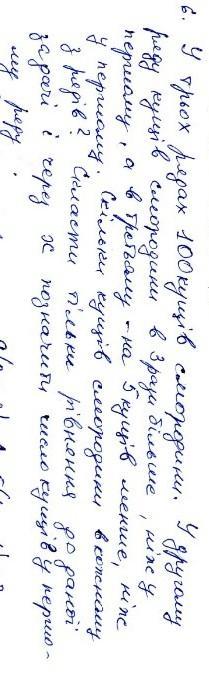 6. У трьох рядах 100 кущів смородини. У другому
ряду кущів смородини в 3 рази більше, ніж у
першому, а в третьому - на 5 кущів менше, ніж
у першому. Скільки кущів смородини в кожному
з рядів? Скласти тільки рівняння до даної
задачі і через х позначити число кущів у першо-
му ряду.